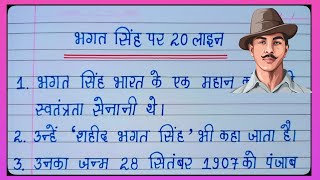 भगत सिंह पर 20 लाइन
1. भगत सिंह भारत के एक महान
स्वतंत्रता सेनानी थे।
2. उन्हें 'शहीद भगत सिंह' भी कहा जाता है।
3. उनका जन्म 28 सितंबर 1907 को पंजाब